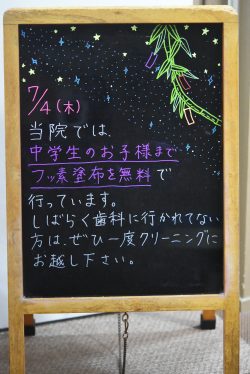 7/4(木)
当院では、
中学生のお子様まで
フッ素塗布を無料で
行っています。
しばらく歯科に行かれてない
方は、ぜひ一度クリーニングに
お越し下さい。